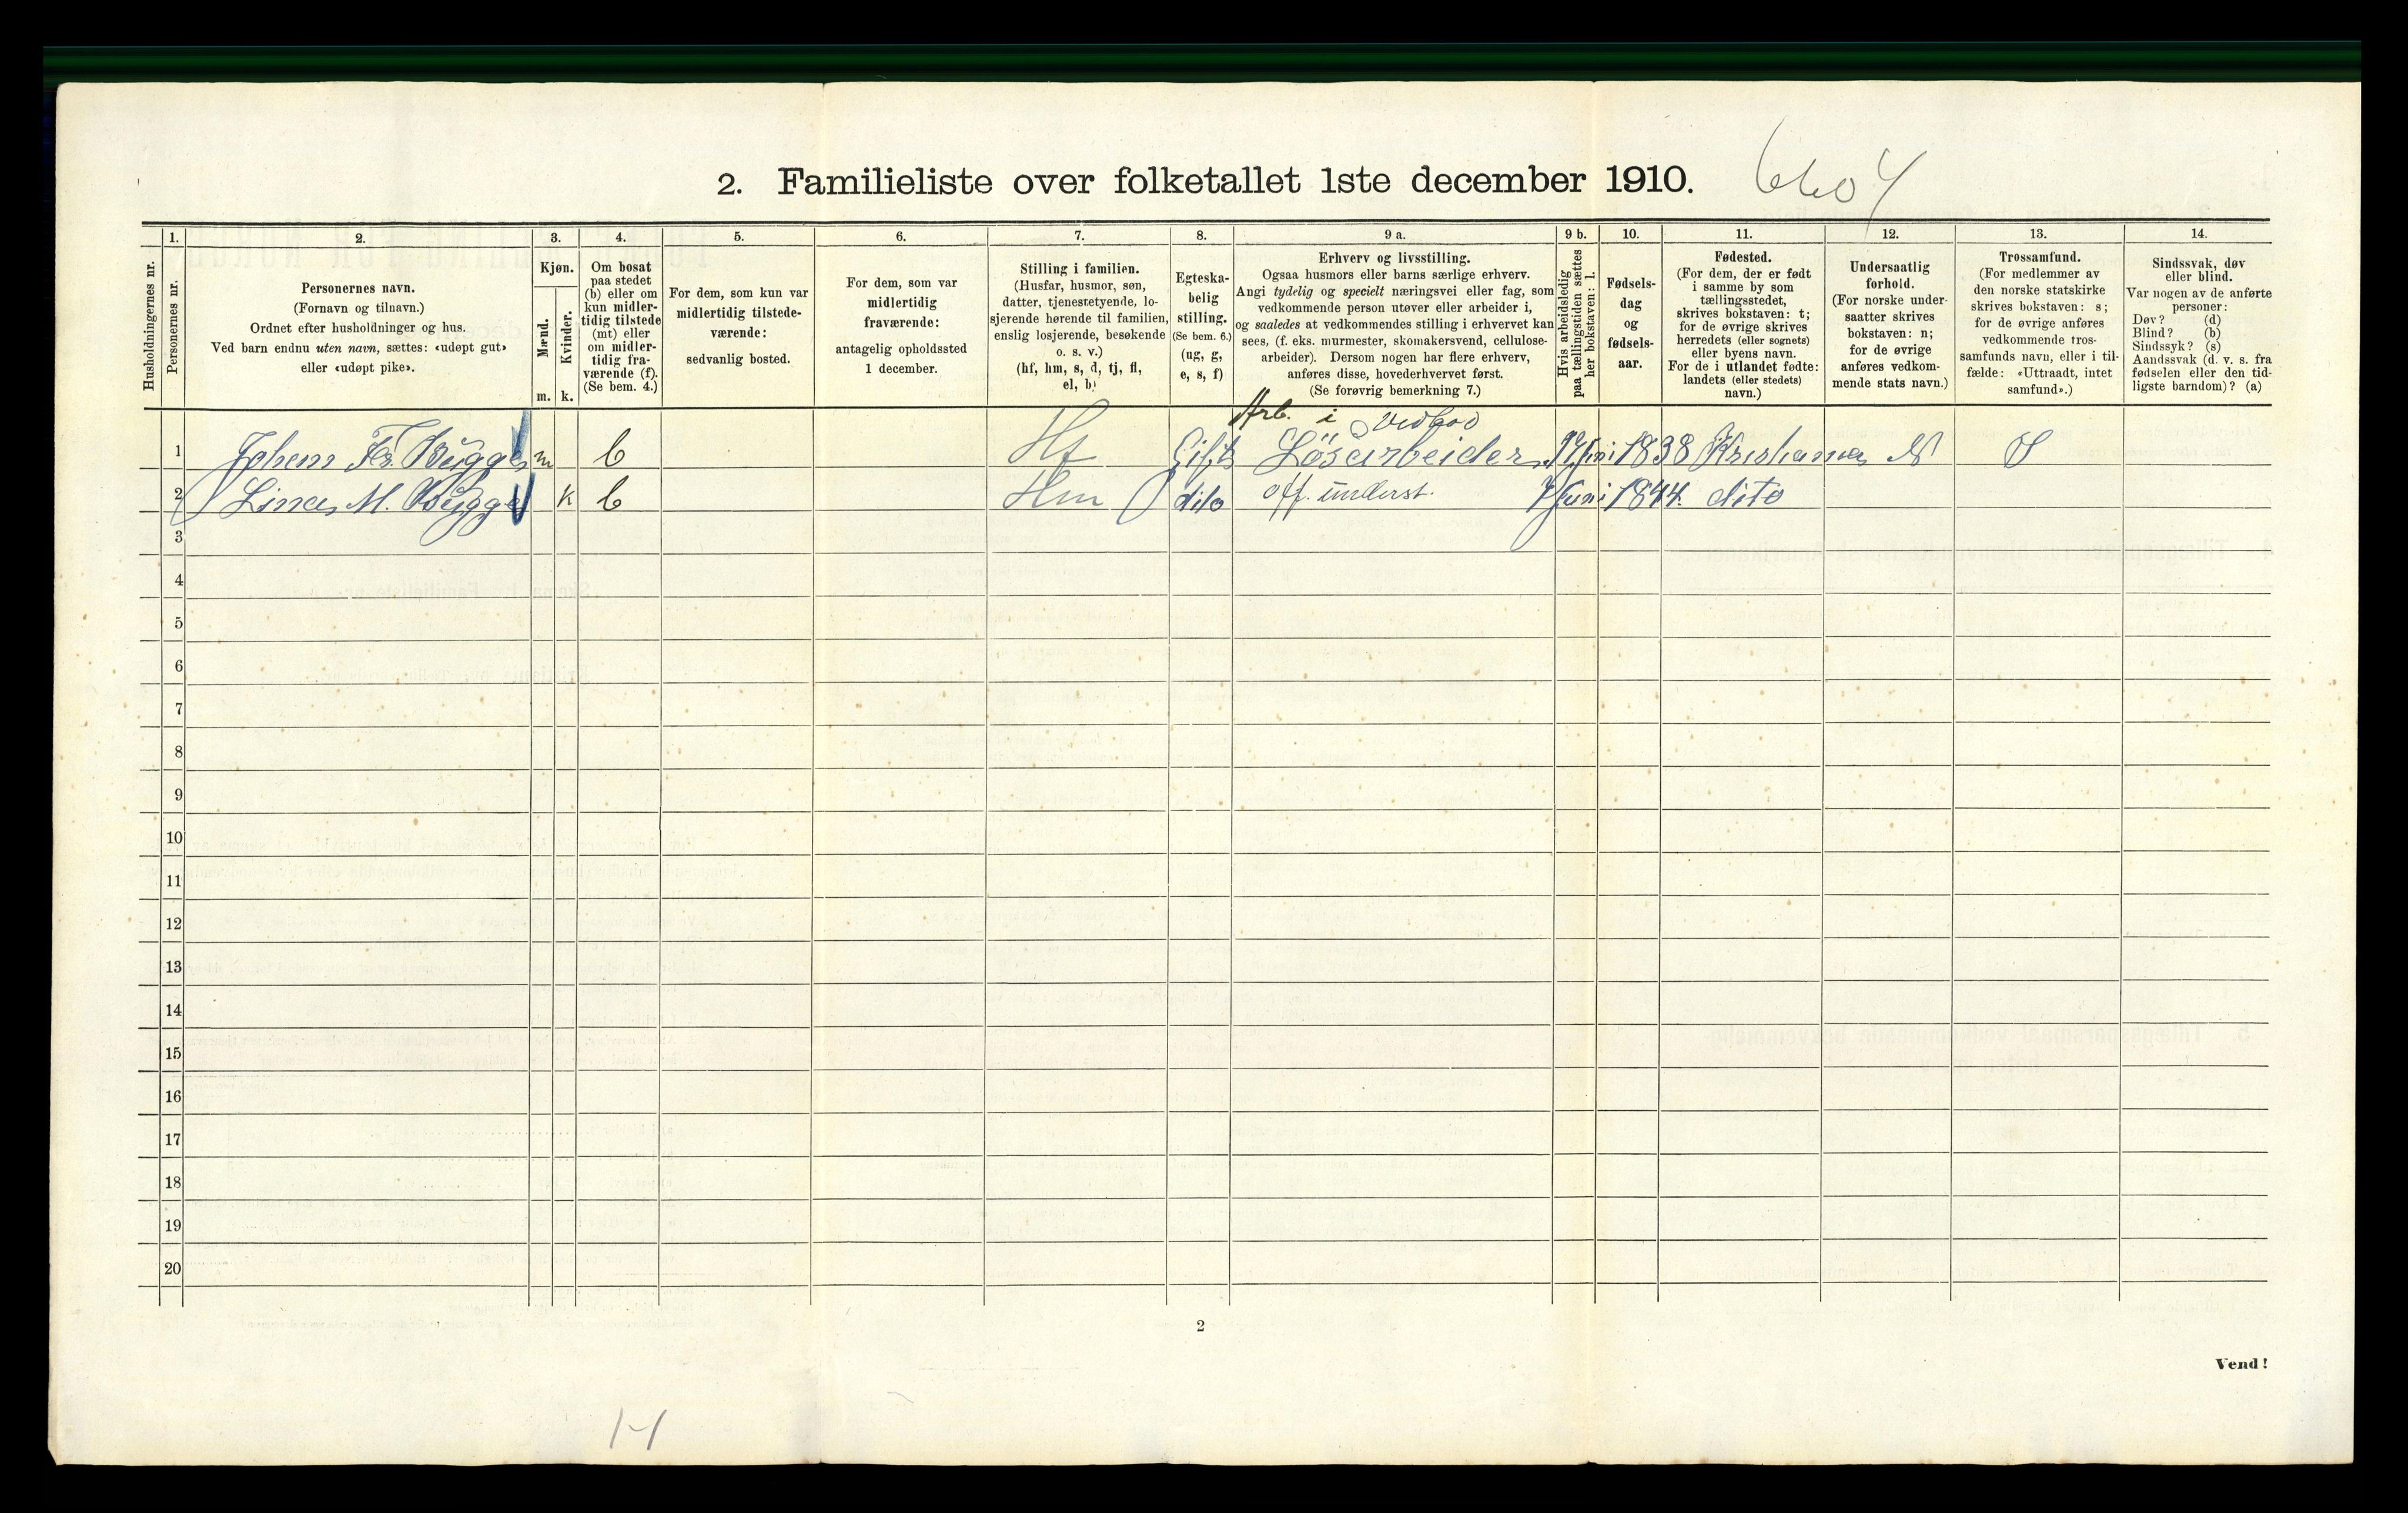 2. Familieliste over folketallet 1ste december 1910. 6604
Husholdningernes nr.
1.
Personernes nr.
2.
Personernes navn.
(Fornavn og tilnavn.)
Ordnet efter husholdninger og hus.
Ved barn endnu uten navn, sættes: «udøpt gut»
eller «udøpt pike».
3.
Kjøn.
Mænd.
Kvinder.
m. k.
4.
Om bosat
paa stedet
(b) eller om
kun midler-
tidig tilstede
(mt) eller
om midler-
tidig fra-
værende (f).
(Se bem. 4.)
5.
For dem, som kun var
midlertidig tilstede-
værende:
sedvanlig bosted.
6.
For dem, som var
midlertidig
fraværende:
antagelig opholdssted
1 december.
7.
Stilling i familien.
(Husfar, husmor, søn,
datter, tjenestetyende, lo-
sjerende hørende til familien,
enslig losjerende, besøkende
o. s. v.)
(hf, hm, s, d, tj, fl,
el, b)
8.
Egteska-
belig
stilling.
(Se bem. 6.)
(ug, g,
e, s, f)
9 a.
Erhverv og livsstilling.
Ogsaa husmors eller barns særlige erhverv.
Angi tydelig og specielt næringsvei eller fag, som
vedkommende person utøver eller arbeider i,
og saaledes at vedkommendes stilling i erhvervet kan
sees, (f. eks. murmester, skomakersvend, cellulose-
arbeider). Dersom nogen har flere erhverv,
anføres disse, hovederhvervet først.
(Se forøvrig bemerkning 7.)
9 b.
Hvis arbeidsledig
paa tællingstiden sættes
her bokstaven: l.
10.
Fødsels-
dag
og
fødsels-
aar.
11.
Fødested.
(For dem, der er født
i samme by som
tællingsstedet,
skrives bokstaven: t;
for de øvrige skrives
herredets (eller sognets)
eller byens navn.
For de i utlandet fødte:
landets (eller stedets)
navn.)
12.
Undersaatlig
forhold.
(For norske under-
saatter skrives
bokstaven: n;
for de øvrige
anføres vedkom-
mende stats navn.)
13.
Trossamfund.
(For medlemmer av
den norske statskirke
skrives bokstaven: s;
for de øvrige anføres
vedkommende tros-
samfunds navn, eller i til-
fælde: «Uttraadt, intet
samfund».)
14.
Sindssvak, døv
eller blind.
Var nogen av de anførte
personer:
Døv? (d)
Blind? (b)
Sindssyk? (s)
Aandssvak (d. v. s. fra
fødselen eller den tid-
ligste barndom)? (a)
Arb. i Vedbod
1 Johan Fr. Bügge m b Hf Gift Løsarbeider 17 juni 1838 Kristiania N S
2 Lina M. Bügge k b Hm dito off. underst. 7 juni 1844. dito
3
4
5
6
7
8
9
10
11
12
13
14
15
16
17
18
19
20
2
Vend!